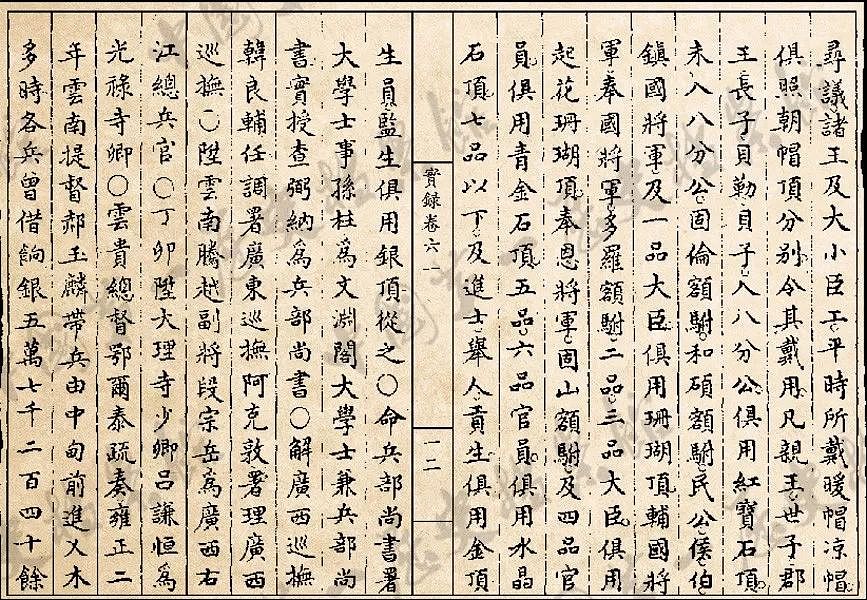 尋議諸王及大小臣工平時所戴暖帽涼帽
俱照朝帽頂分別令其戴用凡親王世子郡
王長子貝勒貝子入八分公俱用紅寶石頂
未入八分公固倫額駙和碩額駙民公侯伯
鎮國將軍及一品大臣俱用珊瑚頂輔國將
軍奉國將軍多羅額駙二品三品大臣俱用
起花珊瑚頂奉恩將軍固山額駙及四品官
員俱用青金石頂五品六品官員俱用水晶
石頂七品以下及進士舉人貢生俱用金頂
實錄卷六一
一二
生員監生俱用銀頂從之○命兵部尚書署
大學士事孫柱為文淵閣大學士兼兵部尚
書實授查弼納為兵部尚書○解廣西巡撫
韓良輔任調署廣東巡撫阿克敦署理廣西
巡撫○陞雲南騰越副將段宗岳為廣西右
江總兵官○丁卯陞大理寺少卿呂謙恒為
光祿寺卿○雲貴總督鄂爾泰疏奏雍正二
年雲南提督郝玉麟帶兵由中甸前進乂木
多時各兵曾借餉銀五萬七千二百四十餘